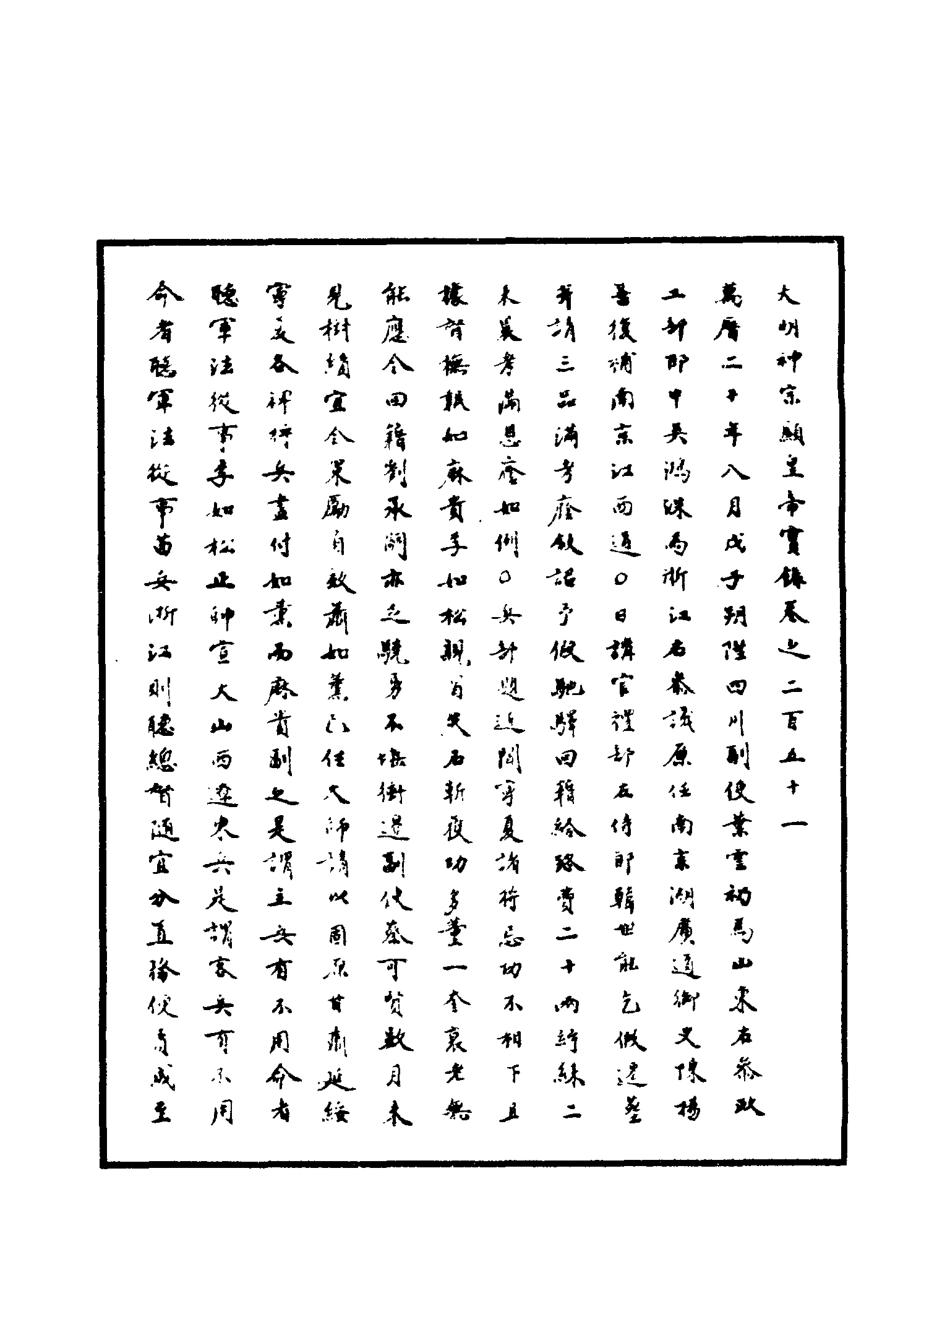 大明神宗顯皇帝實錄卷之二百五十一
萬曆二十年八月戊子朔陞四川副使葉雲礽爲山東右參政
工部郎中吳鴻洙爲浙江右參議原任南京湖廣道御史陳楊
善復補南京江西道○日講官禮部左侍郎韓世能乞假遷塟
并請三品滿考廕敘詔予假馳驛回籍給路費二十兩紵絲二
表裏考滿恩廕如例○兵部題近聞寧夏諸將忌功不相下且
據督撫報如麻貴李如松親冒矢石斬獲功多董一奎衰老無
能應令回籍劉承嗣亦乏驍勇不堪衝邊副使蔡可賢數月未
見樹績宜令策勵自效蕭如薰已任大師請以固原甘肅延綏
寧夏各裨將兵盡付如薰而麻貴副之是謂主兵有不用命者
聽軍法從事李如松止帥宣大山西遼東兵是謂客兵有不用
命者聽軍法從事苗兵浙江則聽總督隨宜分直務使責成至